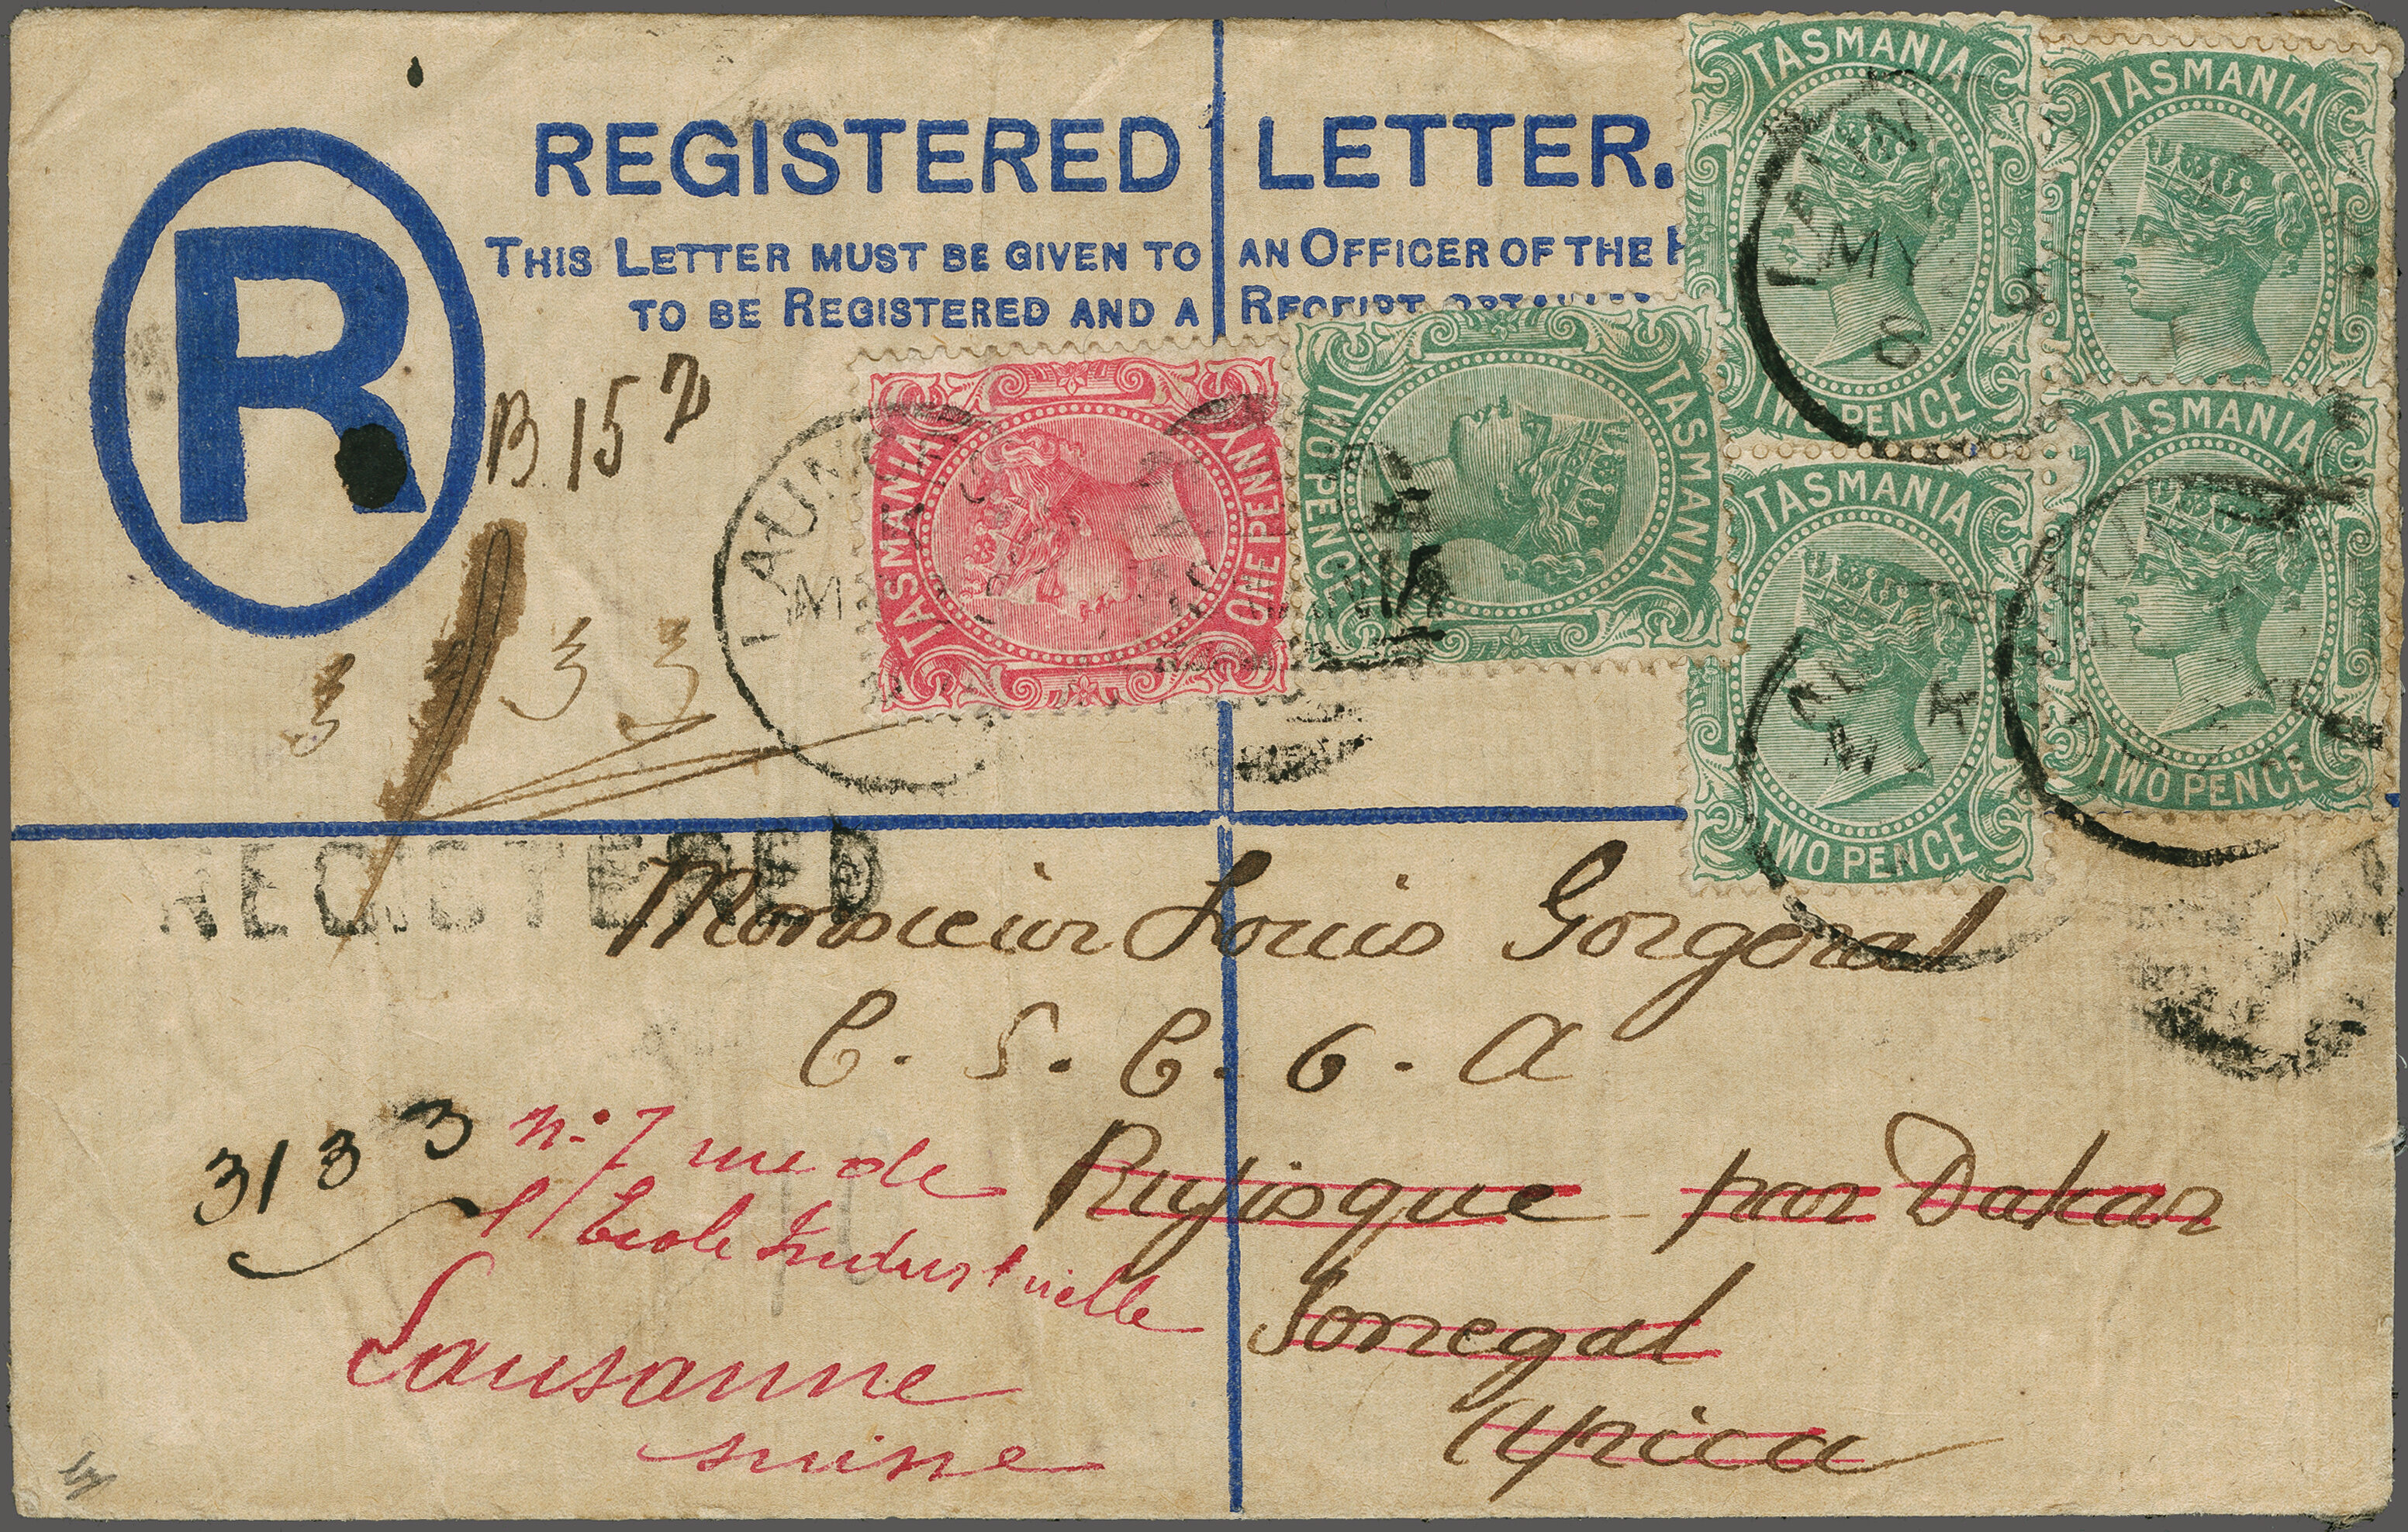 REGISTERED LETTER.
THIS LETTER MUST BE GIVEN TO AN OFFICER OF THE
TO BE REGISTERED AND A RECEIPT
R
B 152
TASMANIA
TWO PENCE
TASMANIA
TASMANIA
TWO PENCE
TASMANIA
TWO PENCE
TASMANIA
TWO PENCE
TASMANIA
ONE PENNY
LAUNC
MY
8
3 3 3
REGISTERED
Monsieur Louis Gorgerat
C. S. C. 6. A
Rufisque par Dakar
Senegal
Africa
3133
No 7 rue de
l'Ecole Industrielle
Lausanne
suisse